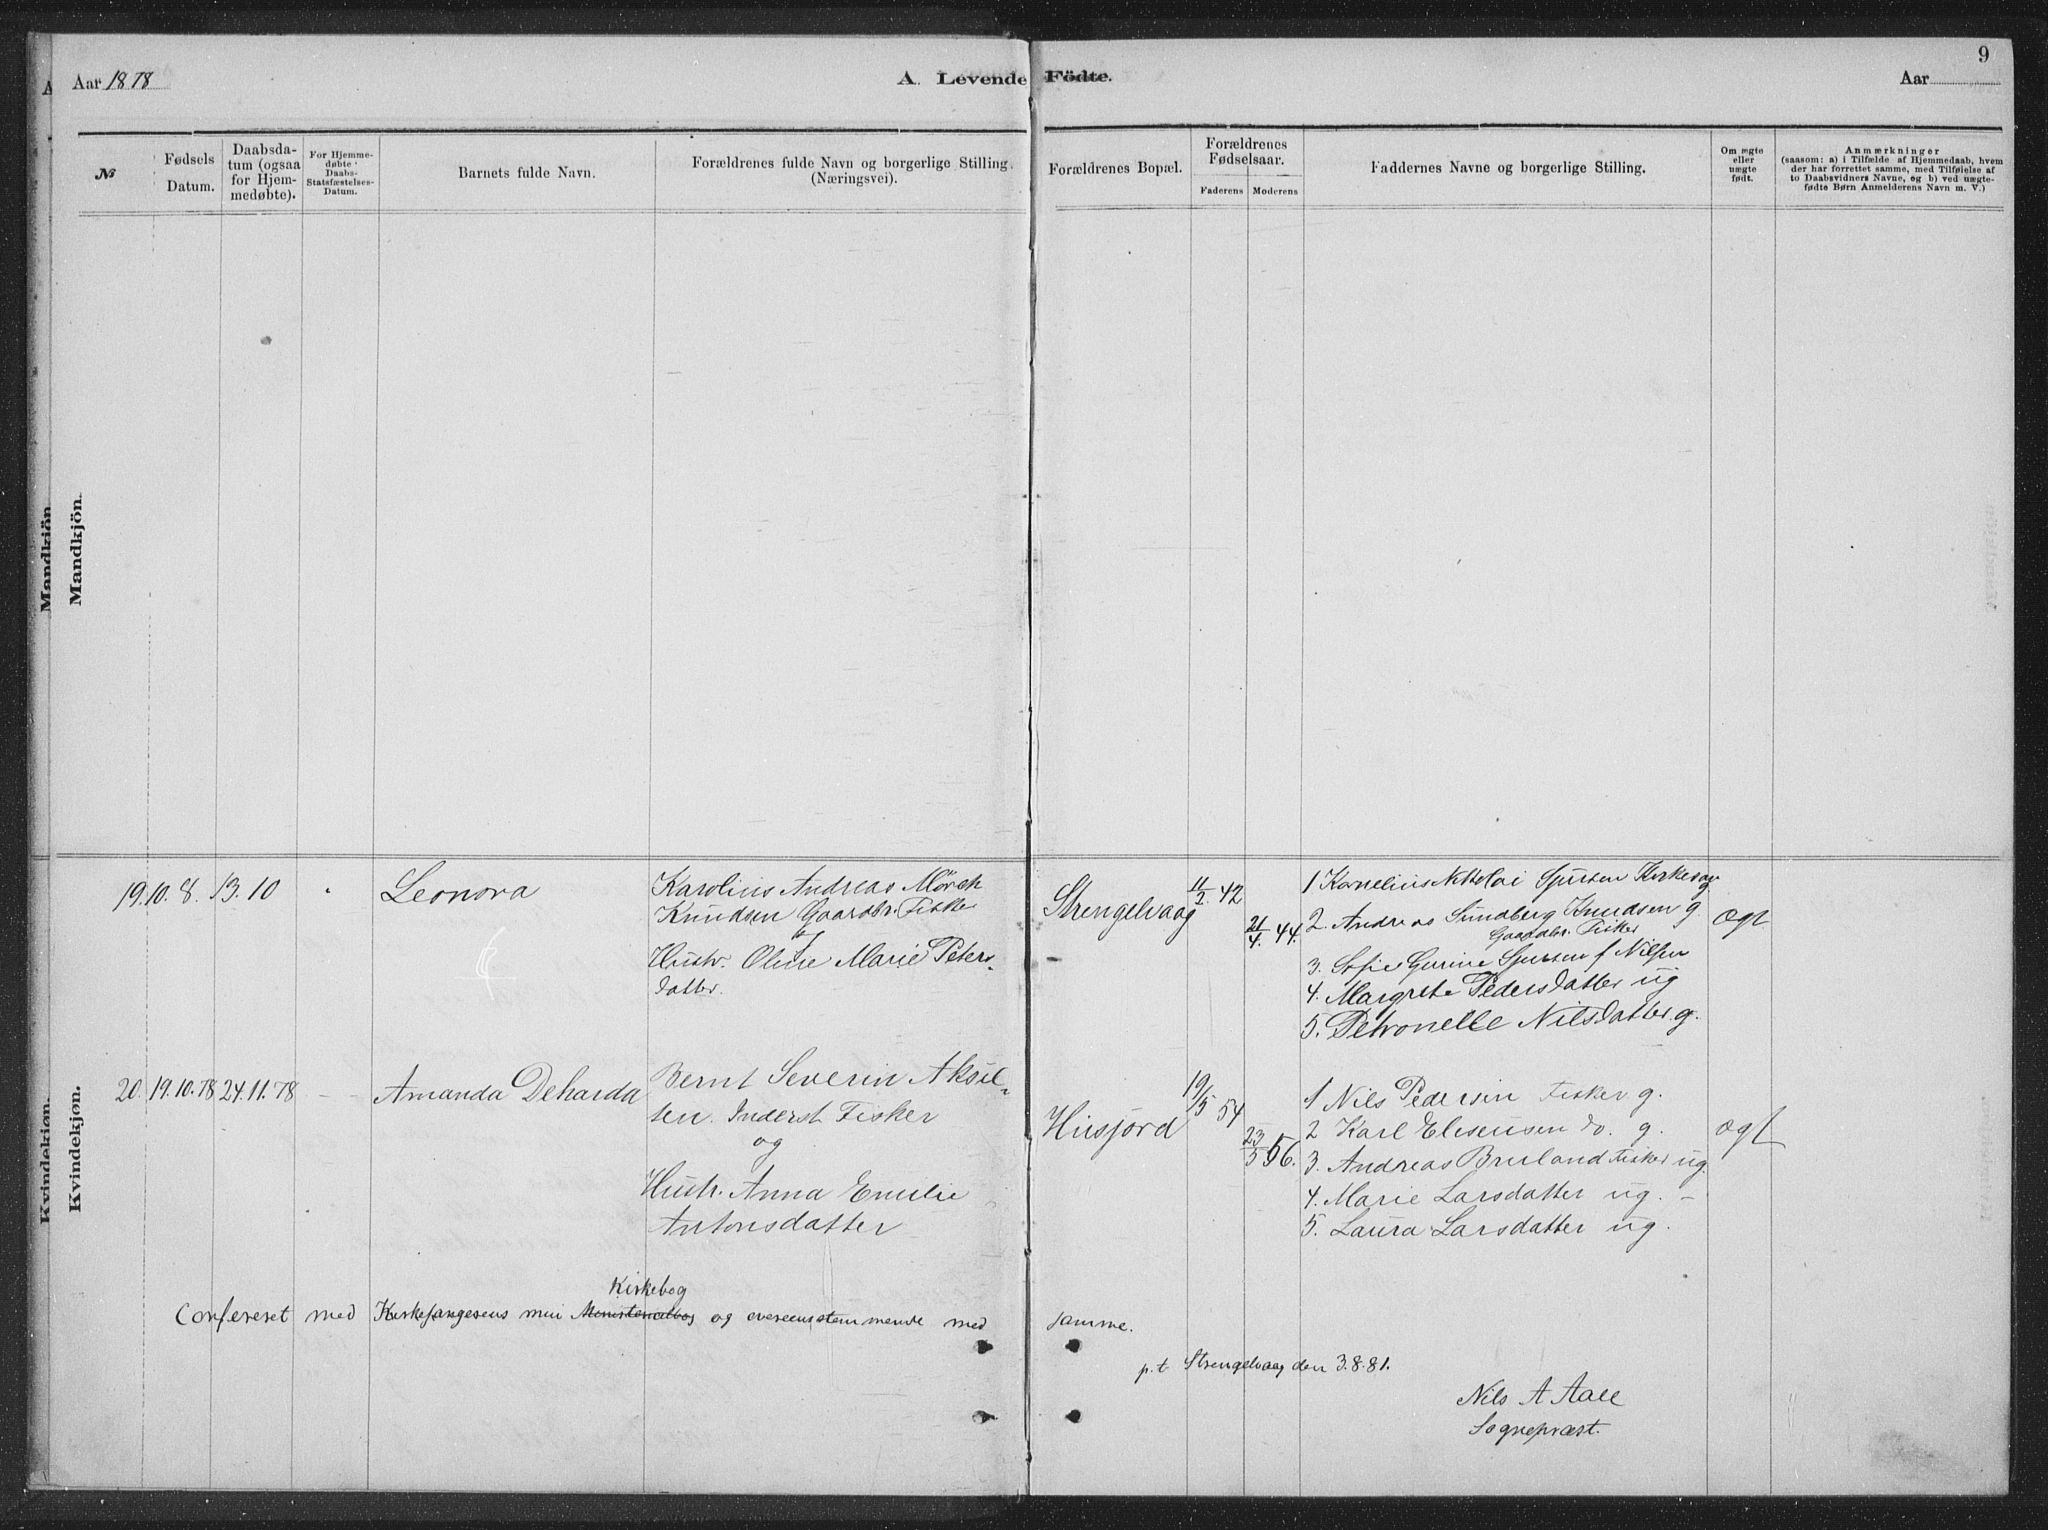 Aar 1878
A. Levende Födte.
Aar
9
№
Fødsels Datum.
Daabsdatum (ogsaa for Hjemmedøbte).
For Hjemmedøbte Daabs-Statsfæstelses-Datum.
Barnets fulde Navn.
Forældrenes fulde Navn og borgerlige Stilling (Næringsvei).
Forældrenes Bopæl.
Forældrenes Fødselsaar.
Faderens
Moderens
Faddernes Navne og borgerlige Stilling.
Om ægte eller uægte født.
Anmærkninger
(saasom: a) i Tilfælde af Hjemmedaab, hvem
der har forrettet samme, med Tilføielse af
to Daabsvidners Navne, og b) ved uægte-
fødte Børn Anmelderens Navn m. V.)
Mandkjön
Mandkjön.
Kvindekjøn.
Kvindekjøn.
19. 10. 8. 13. 10 Leonora
Karolius Andreas Mörch
Knudsen Gaardbr. Fisker
Hustr. Oline Marie Peters-
datter.
Strengelvaag
11/2 42
21/4. 44.
1 Kornelius Nikolai
2. Andreas Sundberg Knudsen g.
Gaardbr. Fisker
3. Sofie
4. Margrete Pedersdatter ug
5. Petronelle Nilsdatter g.
Ægt
20. 19. 10. 78 24. 11. 78 - - Amanda Deharda
Bernt Severin Aksel-
sen. Inderst Fisker
og
Hustr. Anna Emilie
Antonsdatter
Husjord
19/5 54
23/5 56.
1 Nils Pedersen Fisker g.
2 Karl Eliseusen do. g.
3. Andreas Bruland Fisker ug.
4. Marie Larsdatter ug. -
5. Laura Larsdatter ug.
Ægt
Kirkebog
Confereret med Kirkesangerens min Ministerialbog og overeensstemmende med samme.
p. t. Strengelvaag den 3. 8. 81.
Nils A Aall
Sognepræst.